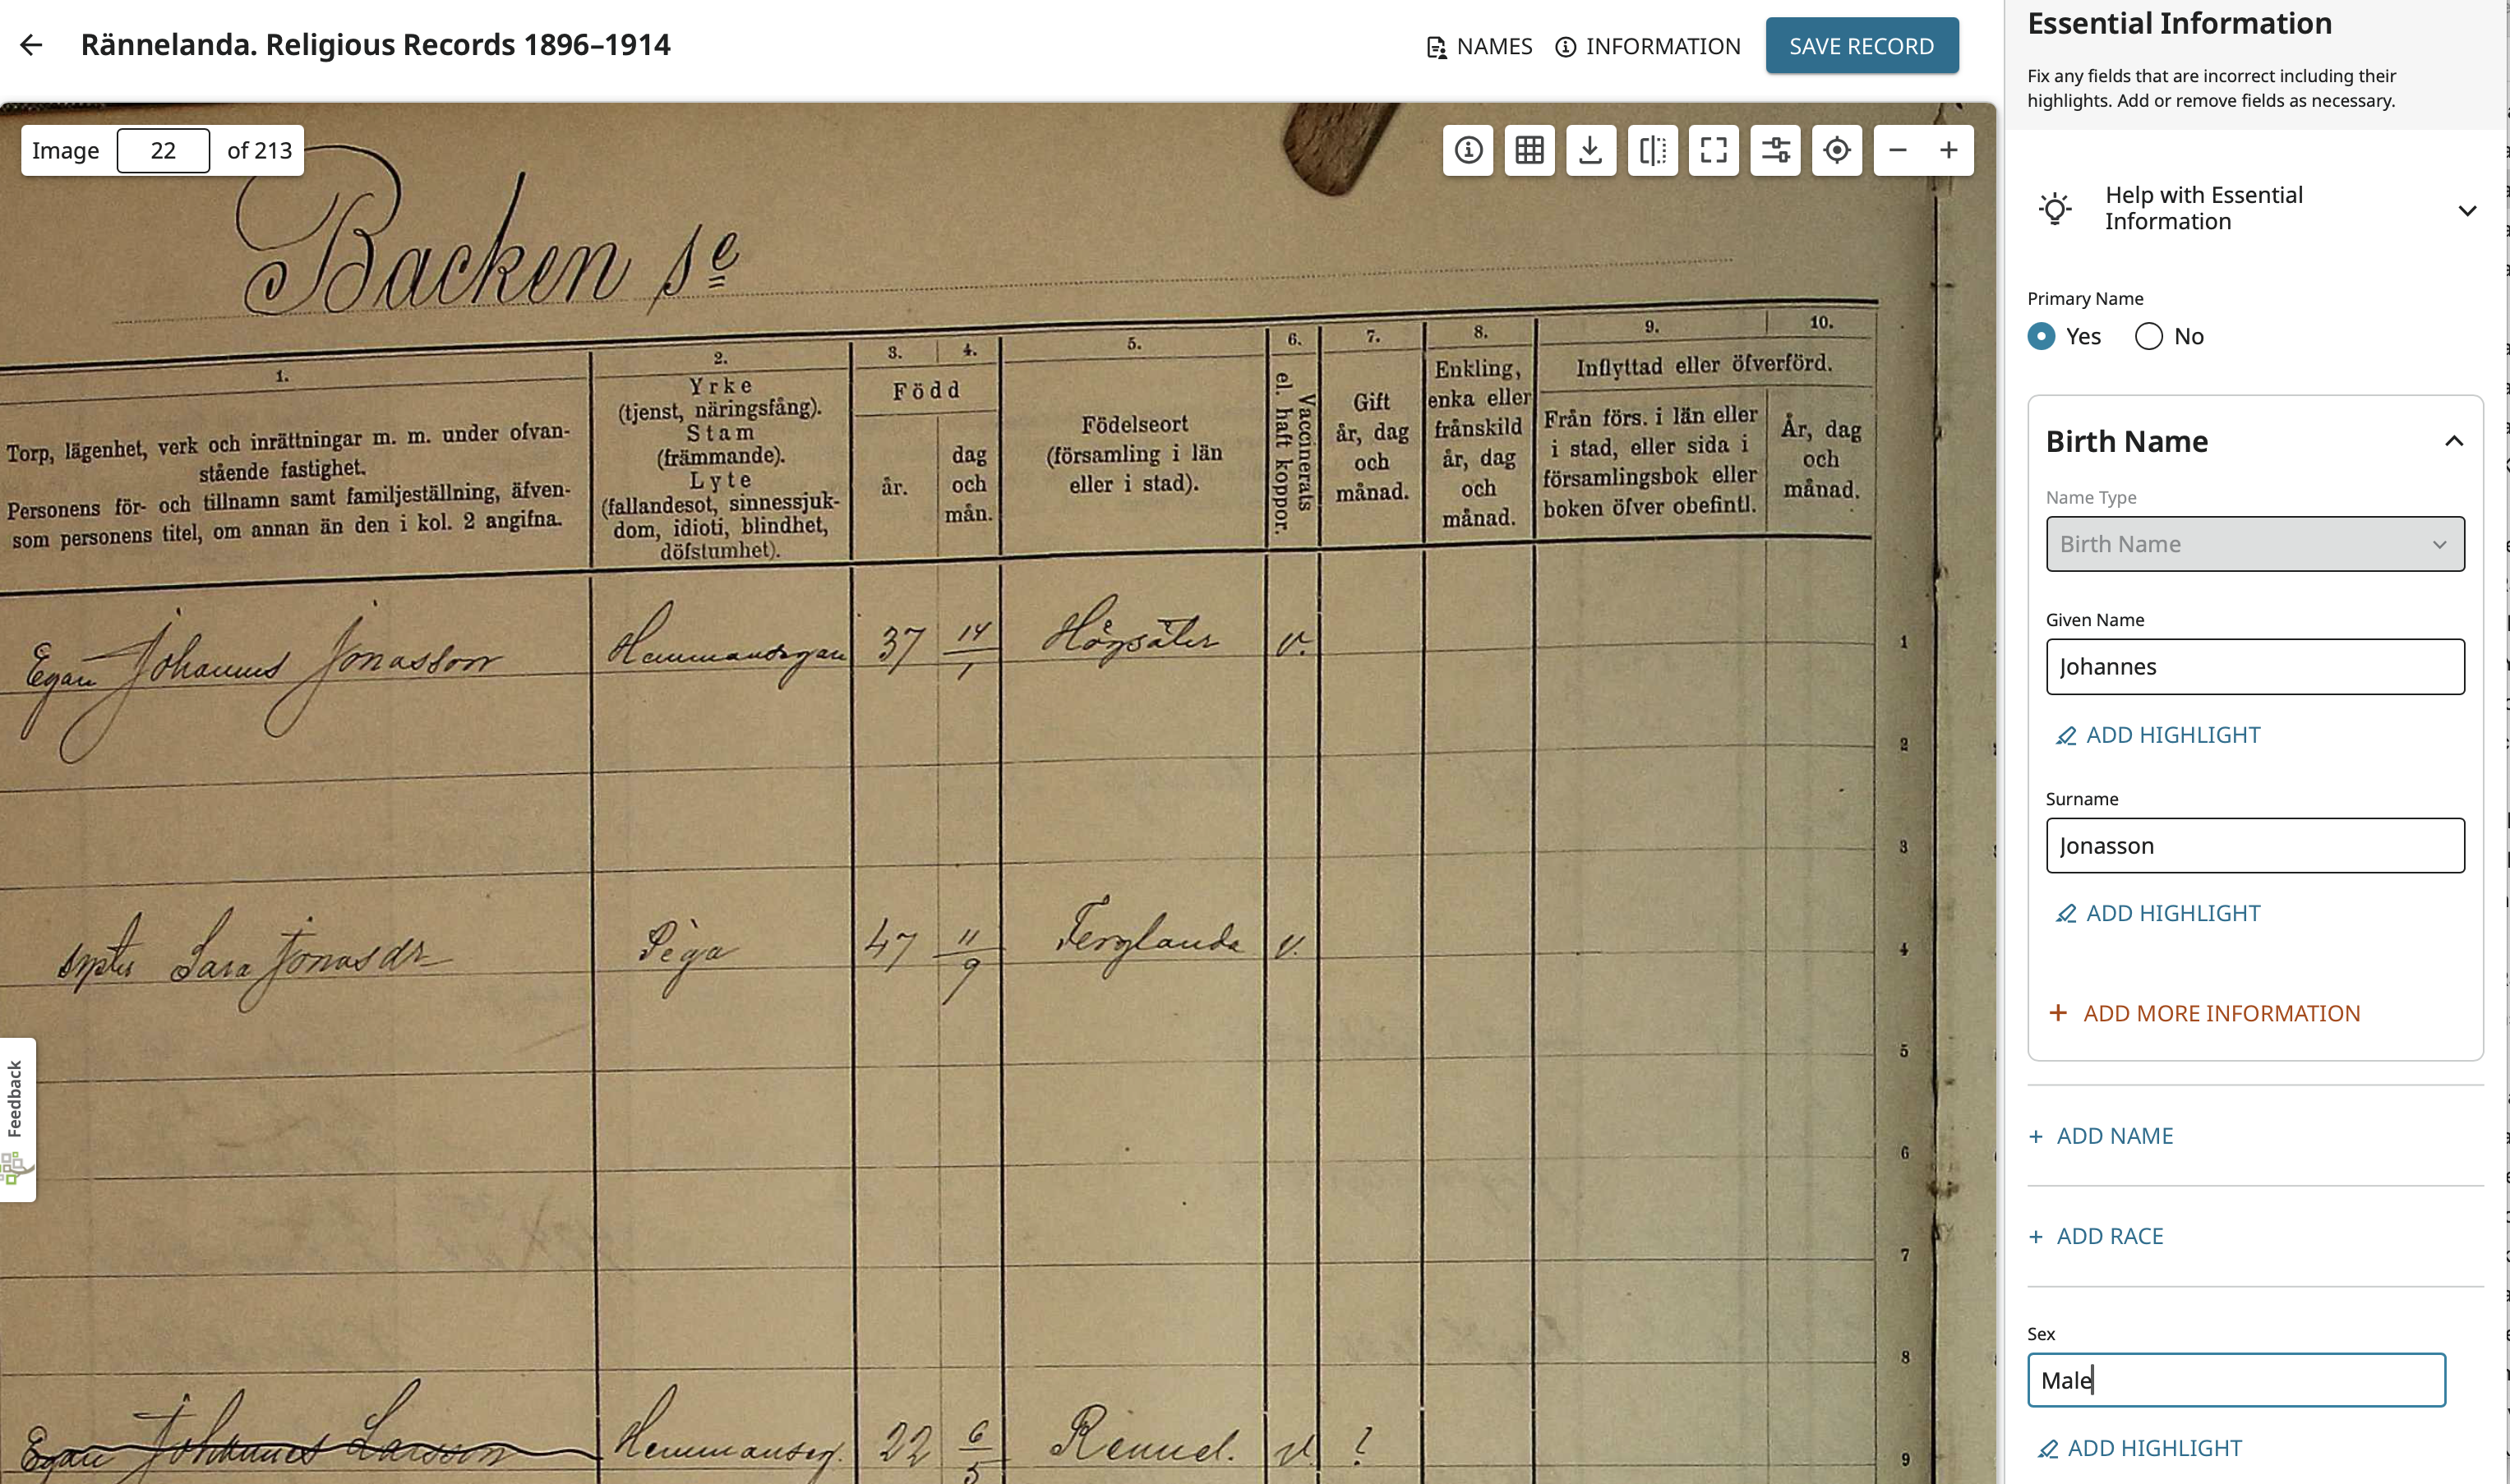 Rännelanda. Religious Records 1896–1914
NAMES
INFORMATION
SAVE RECORD
Image 22 of 213
Backen se
1.
Torp, lägenhet, verk och inrättningar m. m. under ofvan-
stående fastighet.
Personens för- och tillnamn samt familjeställning, äfven-
som personens titel, om annan än den i kol. 2 angifna.
2.
Yrke
(tjenst, näringsfång).
Stam
(främmande).
Lyte
(fallandesot, sinnessjuk-
dom, idioti, blindhet,
döfstumhet).
3. 4.
Född
år.
dag
och
mån.
5.
Födelseort
(församling i län
eller i stad).
6.
Vaccinerats
el. haft koppor.
7.
Gift
år, dag
och
månad.
8.
Enkling,
enka eller
frånskild
år, dag
och
månad.
9. 10.
Inflyttad eller öfverförd.
Från förs. i län eller
i stad, eller sida i
församlingsbok eller
boken öfver obefintl.
År, dag
och
månad.
Egan Johannes Jonasson Hemmansegan 37 14/1 Högsäter v. 1
2
3
Sara Jonasdr Piga 47 11/9 Ferglanda v. 4
5
6
7
8
Egan Johannes Larsson Hemmanseg. 22 6/5 Rennel. v. ? 9
Feedback
Essential Information
Fix any fields that are incorrect including their
highlights. Add or remove fields as necessary.
Help with Essential
Information
Primary Name
Yes No
Birth Name
Name Type
Birth Name
Given Name
Johannes
ADD HIGHLIGHT
Surname
Jonasson
ADD HIGHLIGHT
+ ADD MORE INFORMATION
+ ADD NAME
+ ADD RACE
Sex
Male
ADD HIGHLIGHT